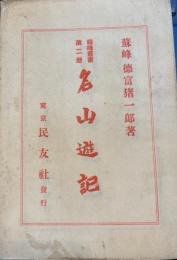 蘇峰 德富猪一郎著
蘇峰叢書
第二冊
名山遊記
東京 民友社 發行